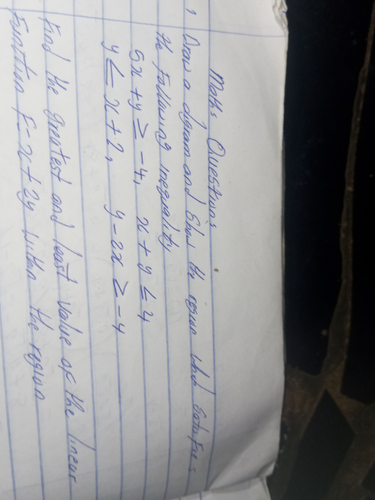 Maths Questions
1 Draw a diagram and show the region which satisfies
the following inequality
5x + y ≥ -4, x + y ≤ 4
y ≤ x + 2, y - 2x ≥ -4
find the greatest and least value of the linear
function F = x + 2y within the region